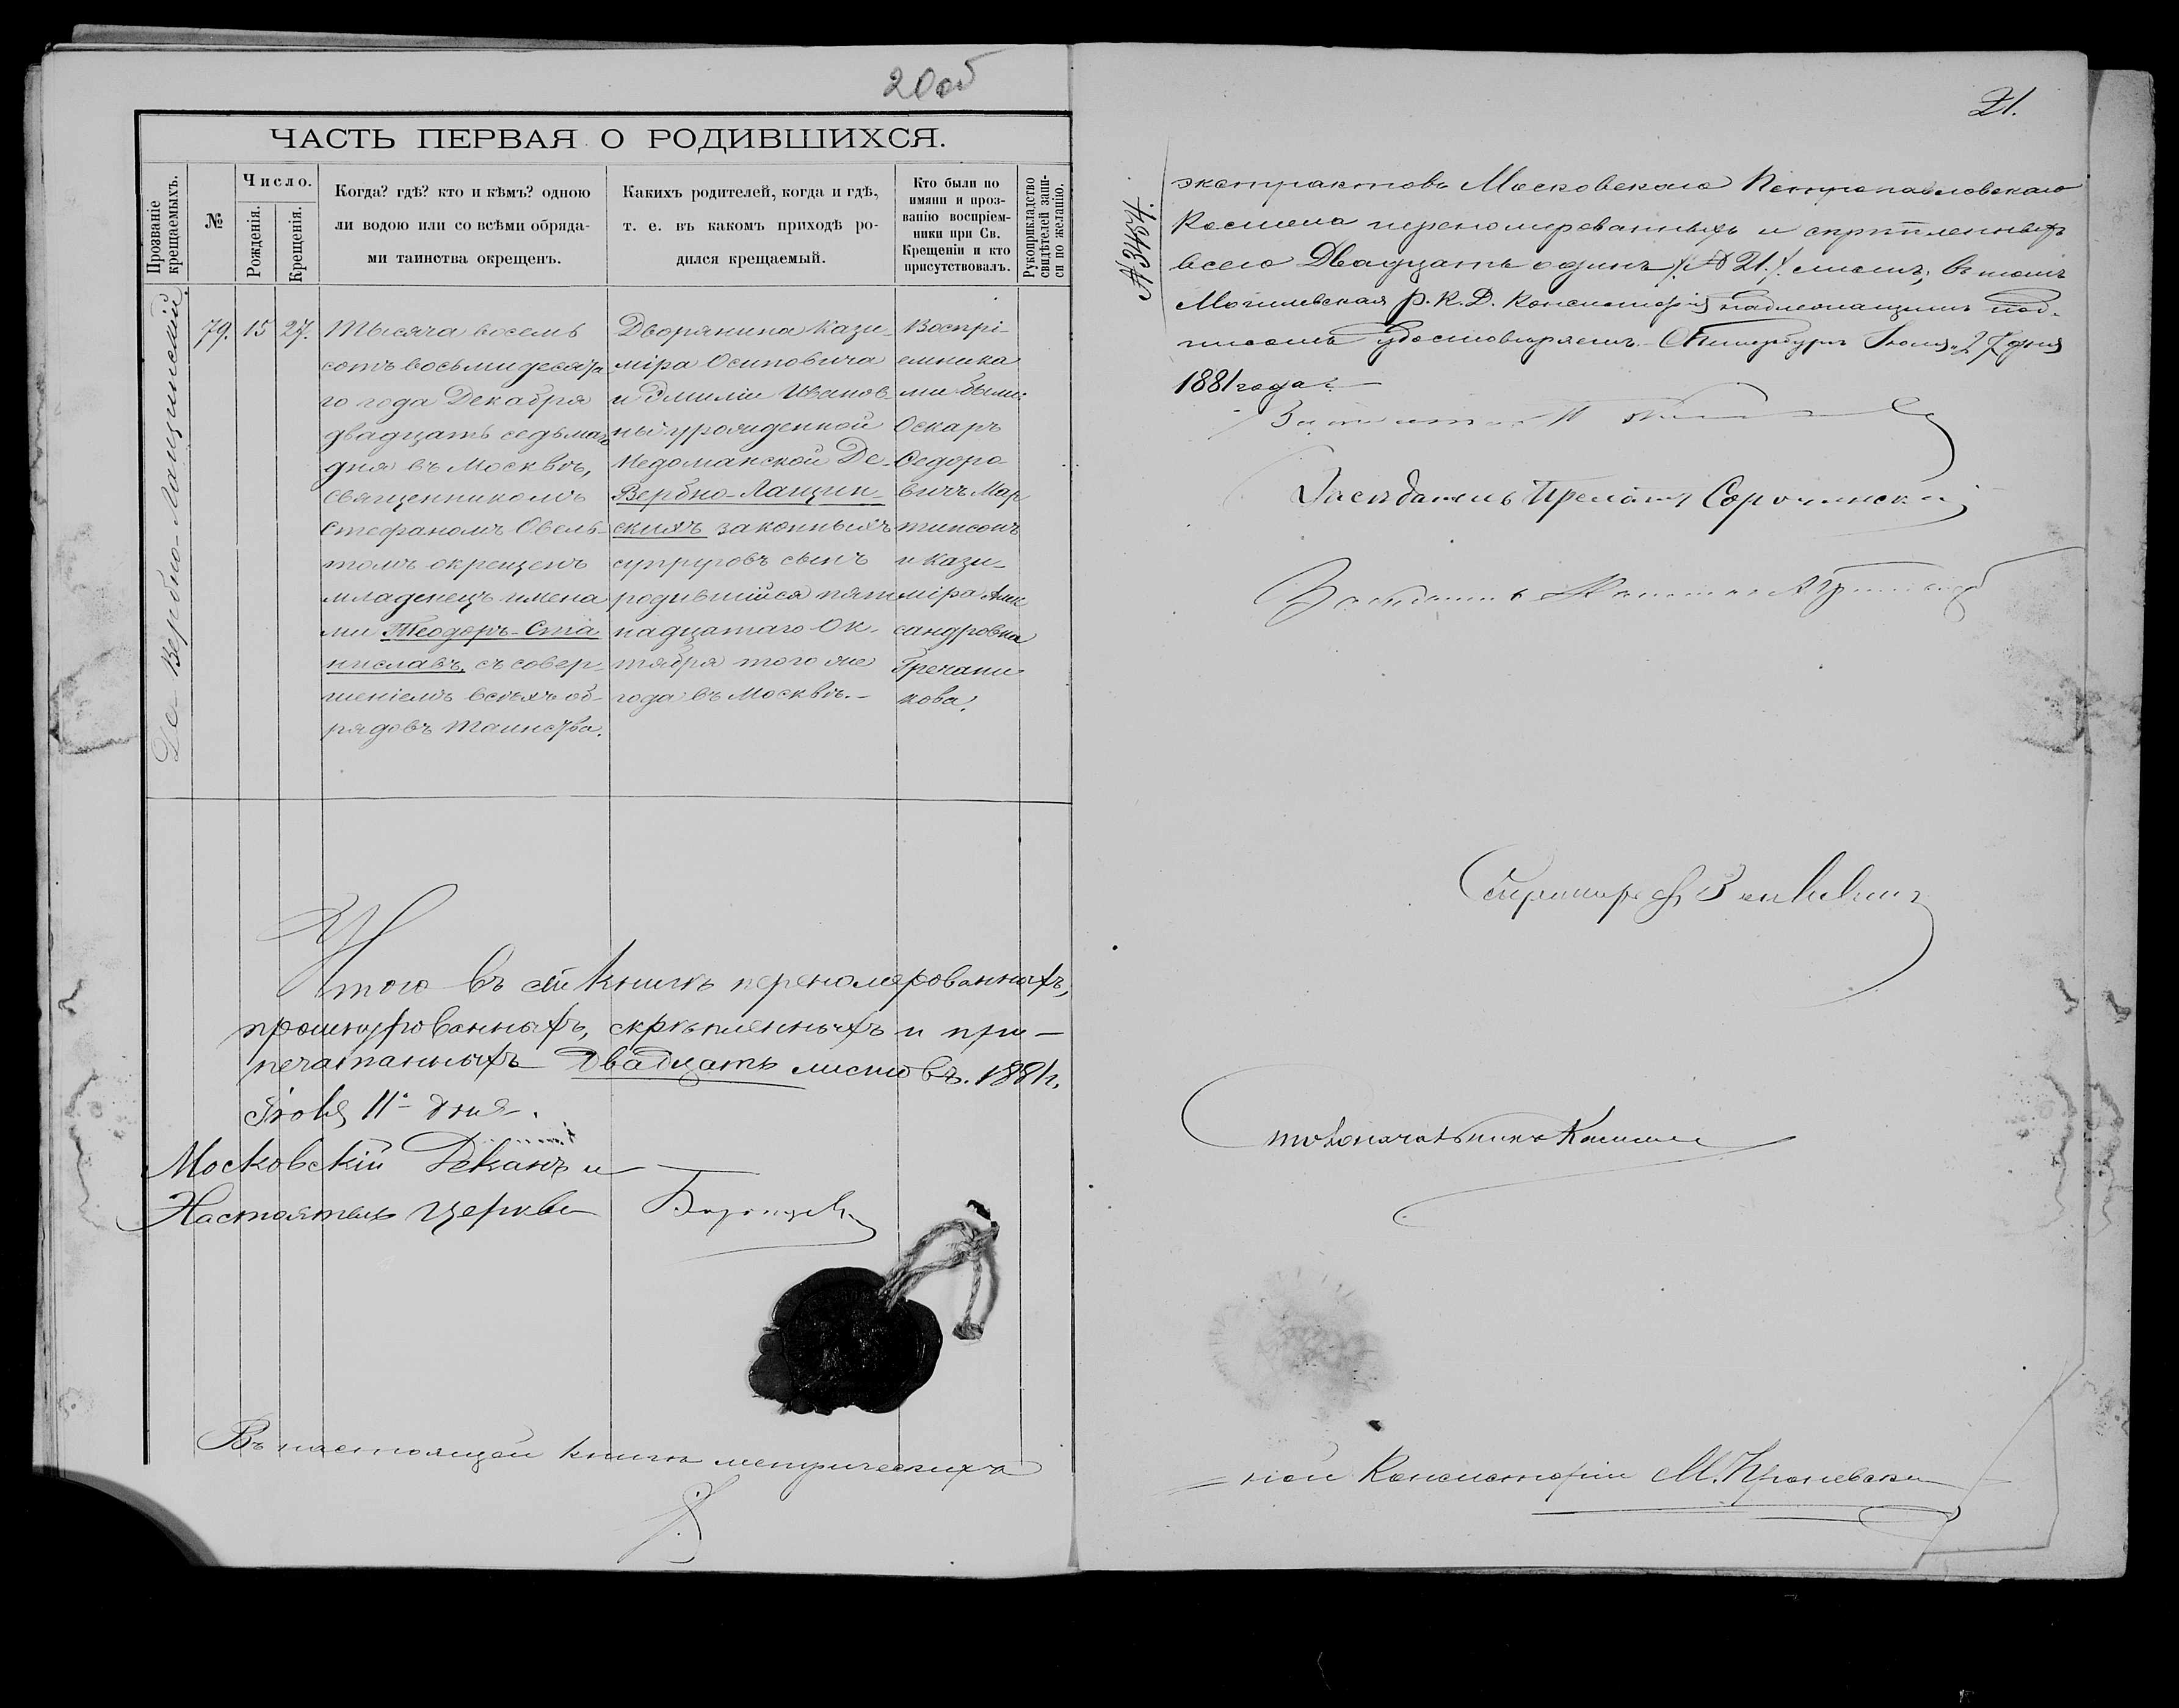 20об
ЧАСТЬ ПЕРВАЯ О РОДИВШИХСЯ.
Прозваніе крещаемыхъ.
№
Число.
Рожденія.
Крещенія.
Когда? гдѣ? кто и кѣмъ? одною
ли водою или со всѣми обряда-
ми таинства окрещенъ.
Какихъ родителей, когда и гдѣ,
т. е. въ какомъ приходѣ ро-
дился крещаемый.
Кто были по
имяни и проз-
ванію воспріем-
ники при Св.
Крещеніи и кто
присутствовалъ.
Рукоприкладство
свидѣтелей запи-
си по желанію.
Де Вербно-Лащинскій
79.
15
27.
Тысяча восемь
сотъ восьмидесята
го года Декабря
двадцать седьмаго
дня въ Москвѣ,
священникомъ
Стефаномъ Овель-
томъ окрещенъ
младенецъ имена
ми Теодоръ-Ста
ниславъ, съ совер-
шеніемъ всѣхъ об-
рядовъ таинства.
Дворянина Кази-
міра Осиповича
и Эмиліи Иванов-
ны урожденной
Медоманской Де-
Вербно-Лащин-
скихъ законныхъ
супруговъ сынъ
родившійся пят
надцатаго Ок-
тября того же
года въ Москвѣ.-
Воспрі-
емника
ми были:
Оскаръ
Федоро-
вичъ Мар
тинсонъ
и Кази-
міра Алек
сандровна
Гречани
кова.
Итого въ сей книгѣ переномерованныхъ,
прошнурованныхъ, скрѣпленныхъ и при-
печатанныхъ Двадцать листовъ. 1881 г.
11 дня.
Московскій Деканъ и
Настоятель церкви
Въ настоящей книгѣ метрическихъ
21.
№ 3454.
экстрактовъ Московскаго Петропавловскаго
Костела переномерованныхъ и скрѣпленныхъ
всего Двадцать одинъ /№ 21./ листъ, въ томъ
Могилевская Р. К. Д. Консисторія надлежащимъ под-
писомъ удостовѣряетъ. С Петербургъ 27 дня
1881 года.
Засѣдатель Прелатъ Сорочинскій
Засѣдатель
Секретарь
Столоначальникъ
ной Консисторіи М.